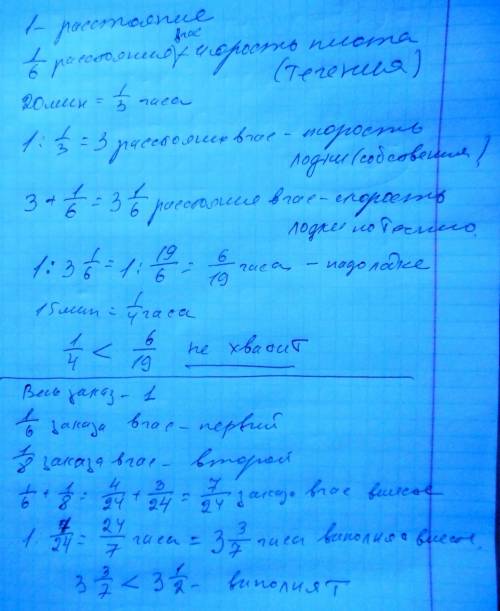 1 - расстояние
1/6 расстояния/час - скорость плота
(течения)
20 мин = 1/3 часа
1 : 1/3 = 3 расстояния в час - скорость
лодки (собственная)
3 + 1/6 = 3 1/6 расстояние в час - скорость
лодки по
1 : 3 1/6 = 1 : 19/6 = 6/19 часа - надо лодке
15 мин = 1/4 часа
1/4 < 6/19 не хватит
Весь заказ - 1
1/6 заказа в час - первый
1/8 заказа в час - второй
1/6 + 1/8 = 4/24 + 3/24 = 7/24 заказа в час вместе
1 : 7/24 = 24/7 часа = 3 3/7 часа вместе
3 3/7 < 3 1/2 - выполнят